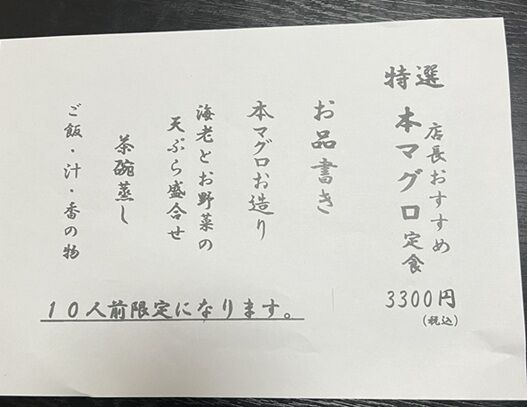 特選
店長おすすめ
本マグロ定食
3300円
(税込)
お品書き
本マグロお造り
海老とお野菜の
天ぷら盛合せ
茶碗蒸し
ご飯・汁・香の物
１０人前限定になります。